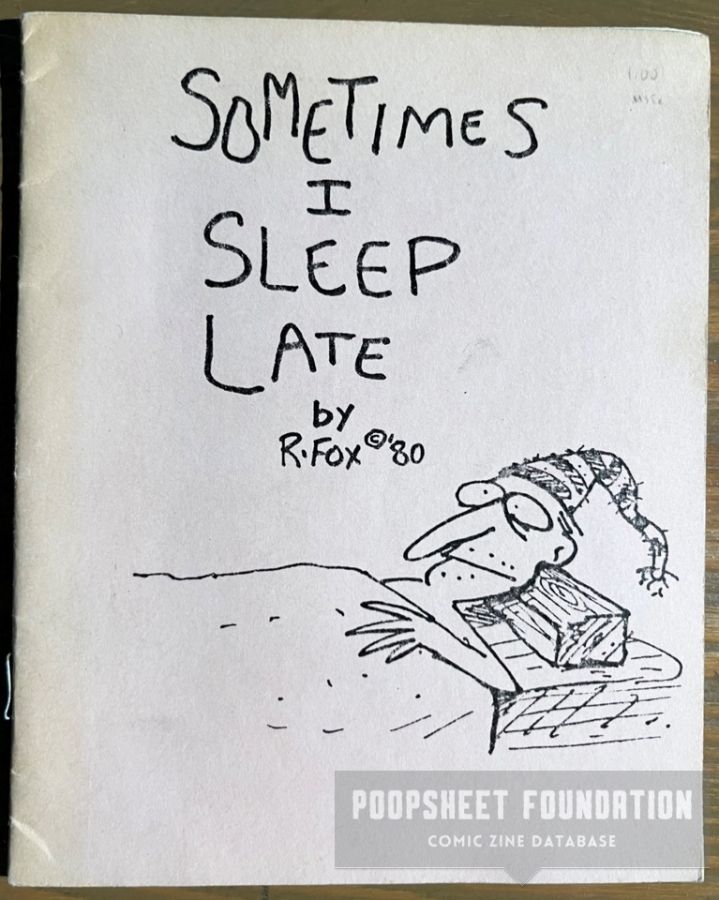 SOMETIMES
I
SLEEP
LATE
by
R. FOX © '80
1.00
POOPSHEET FOUNDATION
COMIC ZINE DATABASE